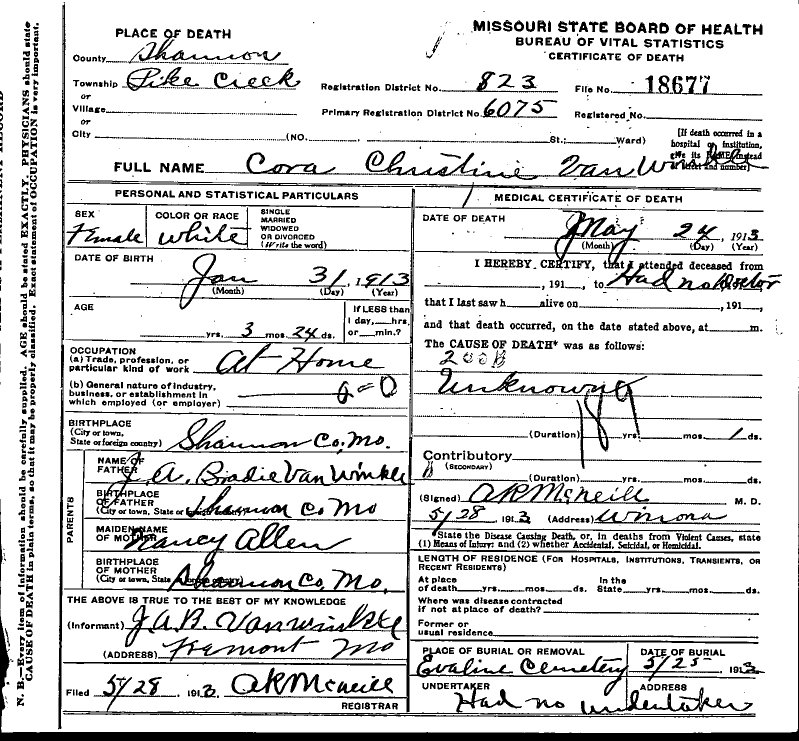 MISSOURI STATE BOARD OF HEALTH
BUREAU OF VITAL STATISTICS
CERTIFICATE OF DEATH
PLACE OF DEATH
County Shannon
Township Pike Creek
or
Village
or
City (NO. St.; Ward)
Registration District No. 823 File No. 18677
Primary Registration District No. 6075 Registered No.
[If death occurred in a
hospital or institution,
give its NAME instead
of street and number]
FULL NAME Cora Christine Van Winkle
PERSONAL AND STATISTICAL PARTICULARS
SEX Female
COLOR OR RACE White
SINGLE
MARRIED
WIDOWED
OR DIVORCED
(Write the word)
DATE OF BIRTH
Jan 31 1913
(Month) (Day) (Year)
AGE
yrs. 3 mos. 24 ds.
If LESS than
1 day, hrs.
or min.?
OCCUPATION
(a) Trade, profession, or
particular kind of work At Home
(b) General nature of industry,
business, or establishment in
which employed (or employer)
BIRTHPLACE
(City or town,
State or foreign country) Shannon Co, Mo.
PARENTS
NAME OF
FATHER J. A. Bradie Van Winkle
BIRTHPLACE
OF FATHER
(City or town, State or foreign country) Shannon Co Mo
MAIDEN NAME
OF MOTHER Nancy Allen
BIRTHPLACE
OF MOTHER
(City or town, State or foreign country) Shannon Co, Mo.
THE ABOVE IS TRUE TO THE BEST OF MY KNOWLEDGE
(Informant) J A B. Vanwinkle
(ADDRESS) Fremont Mo
Filed 5/28 1913 AR McNeill
REGISTRAR
MEDICAL CERTIFICATE OF DEATH
DATE OF DEATH
May 24, 1913
(Month) (Day) (Year)
I HEREBY CERTIFY, that I attended deceased from
, 191 , to Had no Doctor
that I last saw h alive on , 191 ,
and that death occurred, on the date stated above, at m.
The CAUSE OF DEATH* was as follows:
200B
Unknown
189
(Duration) yrs. mos. 1 ds.
Contributory
(SECONDARY)
(Duration) yrs. mos. ds.
(Signed) AR McNeill M. D.
5/28 1913 (Address) Winona
*State the Disease Causing Death, or, in deaths from Violent Causes, state
(1) Means of Injury; and (2) whether Accidental, Suicidal, or Homicidal.
LENGTH OF RESIDENCE (FOR HOSPITALS, INSTITUTIONS, TRANSIENTS, OR
RECENT RESIDENTS)
At place
of death yrs. mos. ds.
In the
State yrs. mos. ds.
Where was disease contracted
if not at place of death?
Former or
usual residence
PLACE OF BURIAL OR REMOVAL
Evaline Cemetery
DATE OF BURIAL
5/25 1913
UNDERTAKER ADDRESS
Had no undertaker
N. B.—Every item of information should be carefully supplied. AGE should be stated EXACTLY. PHYSICIANS should state
CAUSE OF DEATH in plain terms, so that it may be properly classified. Exact statement of OCCUPATION is very important.